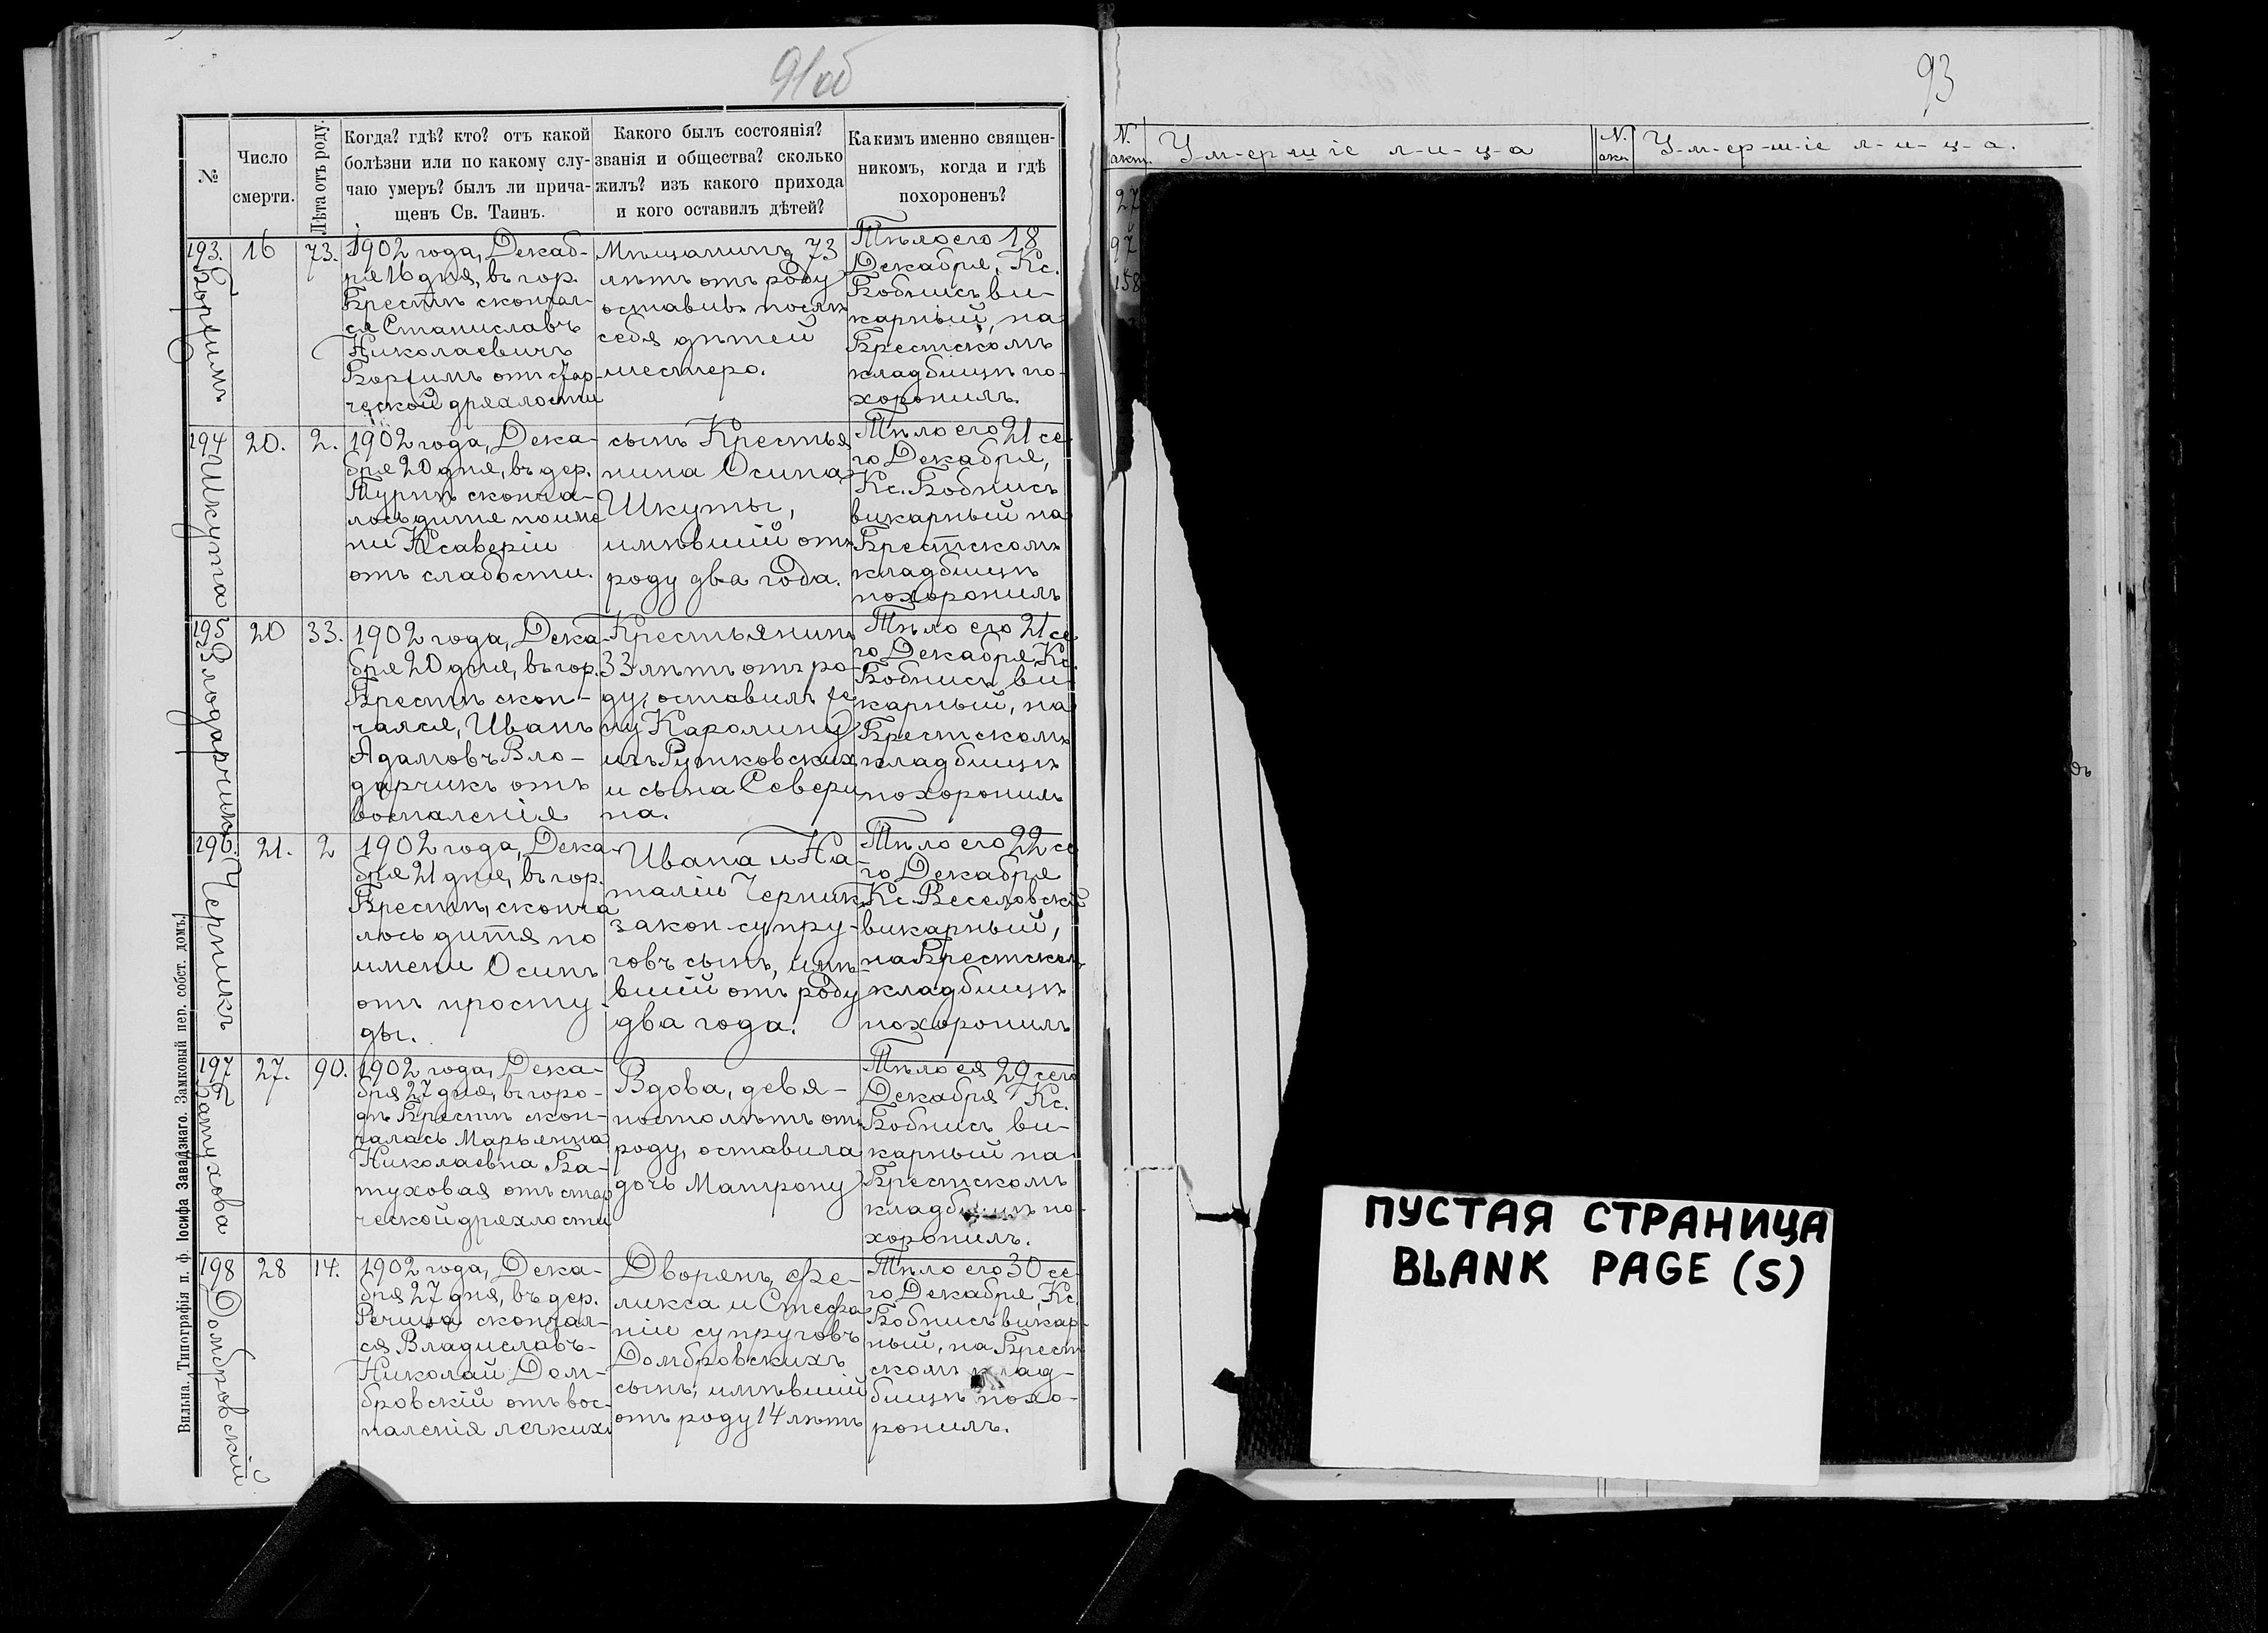 91об
№
Число
смерти.
Лѣта отъ роду.
Когда? гдѣ? кто? отъ какой
болѣзни или по какому слу-
чаю умеръ? былъ ли прича-
щенъ Св. Таинъ.
Какого былъ состоянія?
званія и общества? сколько
жилъ? изъ какого прихода
и кого оставилъ дѣтей?
Какимъ именно священ-
никомъ, когда и гдѣ
похороненъ?
193.
Боржимъ
16
73.
1902 года, Декаб-
ря 16 дня, въ гор.
Брестѣ скончал-
ся Станиславъ
Николаевичъ
Боржимъ отъ стар-
ческой дряхлости
Мѣщанинъ, 73
лѣтъ отъ роду
оставивъ послѣ
себя дѣтей
шестеро.
Тѣло его 18
Декабря, Кс.
Бобнисъ ви-
карный, на
Брестскомъ
кладбищѣ по-
хоронилъ.
194
Шкута
20.
2.
1902 года, Дека-
бря 20 дня, въ дер.
Турнѣ сконча-
лось дитя по име
ни Ксаверій
отъ слабости.
сынъ Крестья
нина Осипа
Шкуты,
имѣвшій отъ
роду два года.
Тѣло его 21 се-
го Декабря,
Кс. Бобнисъ
викарный на
Брестскомъ
кладбищѣ
похоронилъ
195
Влодарчикъ
20
33.
1902 года, Дека-
бря 20 дня, въ гор.
Брестѣ скон-
чался, Иванъ
Адамовъ Вло-
дарчикъ отъ
воспаленія
Крестьянинъ
33 лѣтъ отъ ро-
ду, оставилъ же
ну Каролину
изъ Рутковскихъ
и сына Севери
на.
Тѣло его 21 се-
го Декабря, Кс.
Бобнисъ ви-
карный, на
Брестскомъ
кладбищѣ
похоронилъ
196.
Черникъ
21.
2
1902 года, Дека-
бря 21 дня, въ гор.
Брестѣ, сконча
лось дитя по
имени Осипъ
отъ просту-
ды.
Ивана и На-
таліи Черникъ
закон. супру-
говъ сынъ, имѣ-
вшій отъ роду
два года.
Тѣло его 22 се
го Декабря
Кс. Веселовскій
викарный,
на Брестском
кладбищѣ
похоронилъ
197
Батухова
27.
90.
1902 года, Дека-
бря 27 дня, въ горо-
дѣ Брестѣ скон-
чалась Марьянна
Николаевна Ба-
туховая отъ стар
ческой дряхлости
Вдова, девя-
носто лѣтъ отъ
роду, оставила
дочь Матрону
Тѣло ея 29 сего
Декабря Кс.
Бобнисъ ви-
карный на
Брестскомъ
кладбищѣ по-
хоронилъ.
198
Домбровскій
28
14.
1902 года, Дека-
бря 27 дня, въ дер.
Речица скончал-
ся Владиславъ-
Николай Дом-
бровскій отъ вос-
паленія легкихъ
Дворянъ Фе-
ликса и Стефа
ніи супруговъ
Домбровскихъ
сынъ, имѣвшій
отъ роду 14 лѣтъ
Тѣло его 30 се-
го Декабря, Кс.
Бобнисъ викар-
ный, на Брест
скомъ клад-
бищѣ похо-
ронилъ.
Вильна. Типографія п. ф. Іосифа Завадзкаго. Замковый пер. собст. домъ.
93
N.
акт.
У-м-ер-ш-іе л-и-ц-а
N.
акт
У-м-ер-ш-іе л-и-ц-а.
27
97
158
ПУСТАЯ СТРАНИЦА
BLANK PAGE (S)